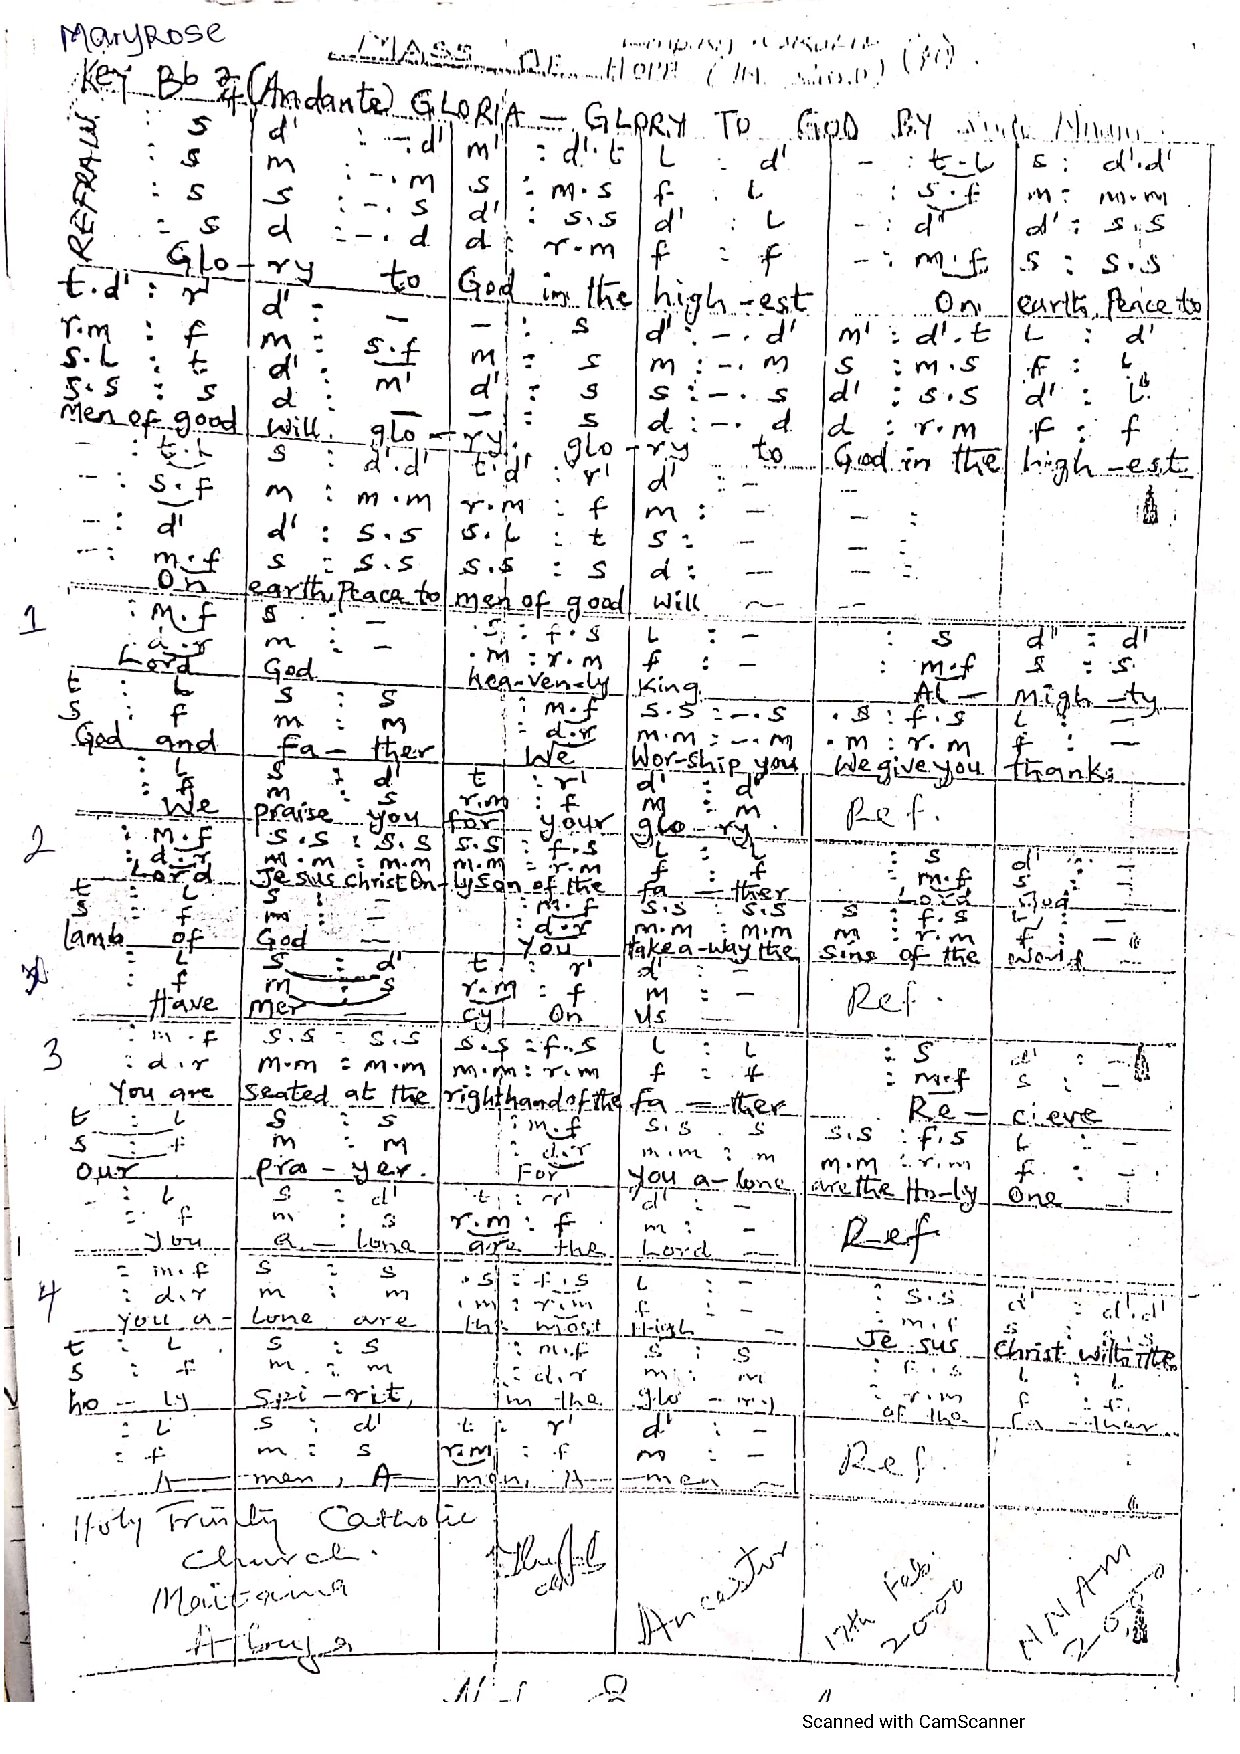 MaryRose
MASS OF HOPE
Key Bb 2/4 (Andante) GLORIA – GLORY TO GOD BY
REFRAIN
: s | d' : -.d' | m' : d'.t | L : d' | - : t.L | s : d'.d'
: s | m : -.m | s : m.s | f : L | : s.f | m : m.m
: s | s : -.s | d' : s.s | d' : L | - : d' | d' : s.s
: s | d : -.d | d : r.m | f : f | - : m.f | s : s.s
Glo-ry to God in the high-est On earth, Peace to
t.d' : r' | d' : - | - : s | d' : -.d' | m' : d'.t | L : d'
r.m : f | m : s.f | m : s | m : -.m | s : m.s | f : L
s.L : t | d' : m' | d' : s | s : -.s | d' : s.s | d' : L
s.s : s | d : - | - : s | d : -.d | d : r.m | f : f
Men of good will glo-ry. glo-ry to God in the high-est
- : t.L | s : d'.d' | t.d' : r' | d' : - | - :
- : s.f | m : m.m | r.m : f | m : - | - :
- : d' | d' : s.s | s.L : t | s : - | - :
- : m.f | s : s.s | s.s : s | d : - | - :
On earth, Peace to men of good will
1
: m.f | s : - | : f.s | L : - | : s | d' : d'
: d.r | m : - | .m : r.m | f : - | : m.f | s : s
Lord God hea-ven-ly King. Al-migh-ty
t : L | s : s | : m.f | s.s : -.s | .s : f.s | L : -
s : f | m : m | : d.r | m.m : -.m | .m : r.m | f : -
God and fa-ther We Wor-ship you We give you thanks
: L | s : d' | t : r' | d' : d'
: f | m : s | r.m : f | m : m | Ref.
We praise you for your glo-ry.
2
: m.f | s.s : s.s | s.s : f.s | L : L | : s | d' : -
: d.r | m.m : m.m | m.m : r.m | f : f | : m.f | s : -
Lord Jesus Christ On-ly Son of the fa-ther Lord God
t : L | s : - | : m.f | s.s : s.s | s : f.s | L : -
s : f | m : - | : d.r | m.m : m.m | m : r.m | f : -
lamb of God You take a-way the Sins of the world
: L | s : d' | t : r' | d' : -
: f | m : s | r.m : f | m : - | Ref.
Have mer cy On Us
3
: m.f | s.s : s.s | s.s : f.s | L : L | : s | d' : -
: d.r | m.m : m.m | m.m : r.m | f : f | : m.f | s : -
You are Seated at the right hand of the fa-ther Re-cieve
t : L | s : s | : m.f | s.s : s | s.s : f.s | L : -
s : f | m : m | : d.r | m.m : m | m.m : r.m | f : -
Our pra-yer. For you a-lone are the Ho-ly One
: L | s : d' | t : r' | d' : -
: f | m : s | r.m : f | m : - | Ref
You a-lone are the Lord
4
: m.f | s : s | .s : f.s | L : - | : s.s | d' : d'.d'
: d.r | m : m | .m : r.m | f : - | : m.f | s : s.s
You a-lone are the most High Je sus Christ with the
t : L | s : s | : m.f | s : s | : f.s | L : L
s : f | m : m | : d.r | m : m | : r.m | f : f
ho-ly Spi-rit, in the glo-ry of the fa-ther
: L | s : d' | t : r' | d' : -
: f | m : s | r.m : f | m : - | Ref.
A-men, A-men, A-men
Holy Trinity Catholic
Church.
Maitama
Abuja
Ancestor
17th Feb. 2000
NNAM 2000
Scanned with CamScanner